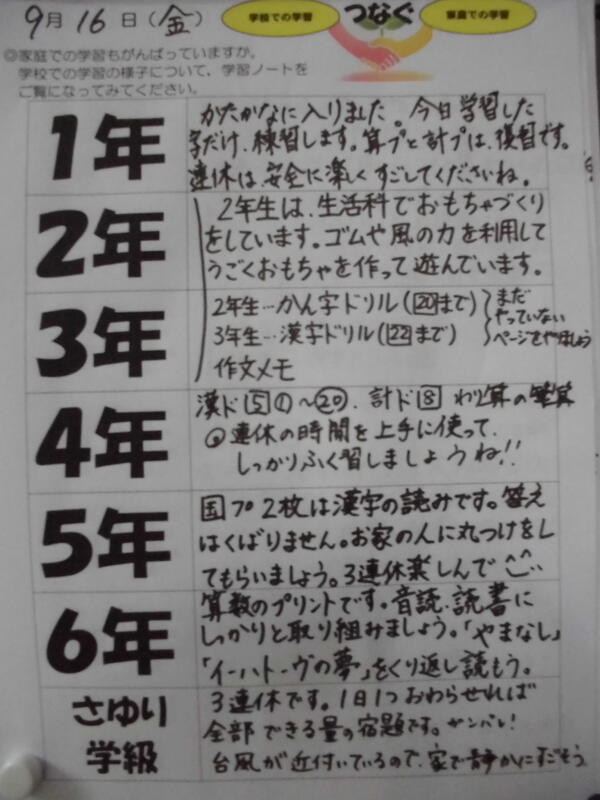 9月16日(金)
学校での学習
つなぐ
家庭での学習
◎家庭での学習もがんばっていますか。
学校での学習の様子について、学習ノートを
ご覧になってみてください。
1年
かたかなに入りました。今日学習した
字だけ、練習します。算プと計プは、復習です。
連休は、安全に楽しくすごしてくださいね。
2年
2年生は、生活科でおもちゃづくり
をしています。ゴムや風の力を利用して
うごくおもちゃを作って遊んでいます。
3年
2年生…かん字ドリル(20まで)
3年生…漢字ドリル(22まで)
まだ
やっていない
ページをやりましょう
作文メモ
4年
漢ド5①~⑳、計ド8 わり算の筆算
◎連休の時間を上手に使って、
しっかりふく習しましょうね!!
5年
国プ2枚は漢字の読みです。答え
はくばりません。お家の人に丸つけをし
てもらいましょう。3連休楽しんで^^
6年
算数のプリントです。音読、読書に
しっかりと取り組みましょう。「やまなし」
「イーハトーヴの夢」をくり返し読もう。
さゆり
学級
3連休です。1日1つおわらせれば
全部できる量の宿題です。ガンバレ!
台風が近付いているので、家で静かにすごそう